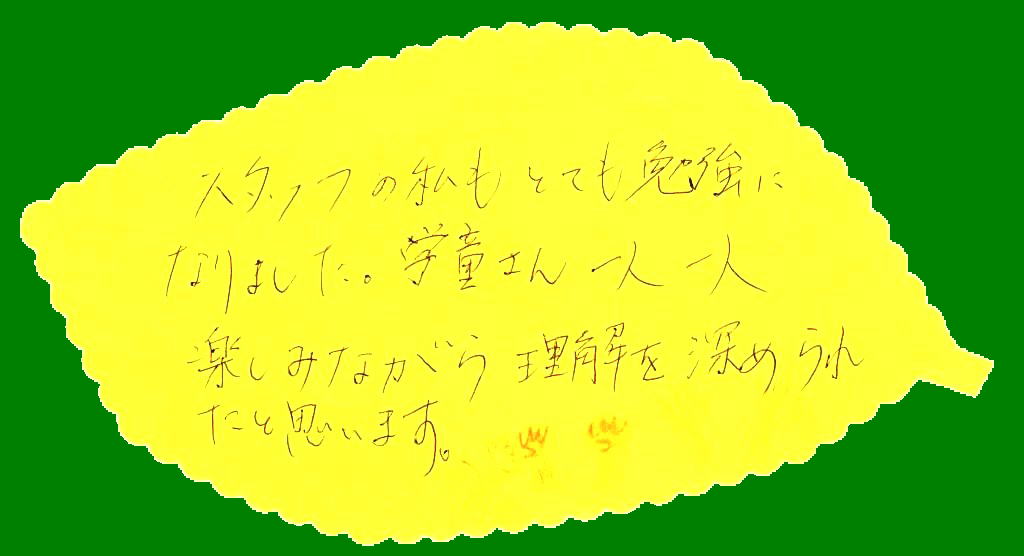 スタッフの私もとても勉強に
なりました。学童さん一人一人
楽しみながら理解を深められ
たと思います。